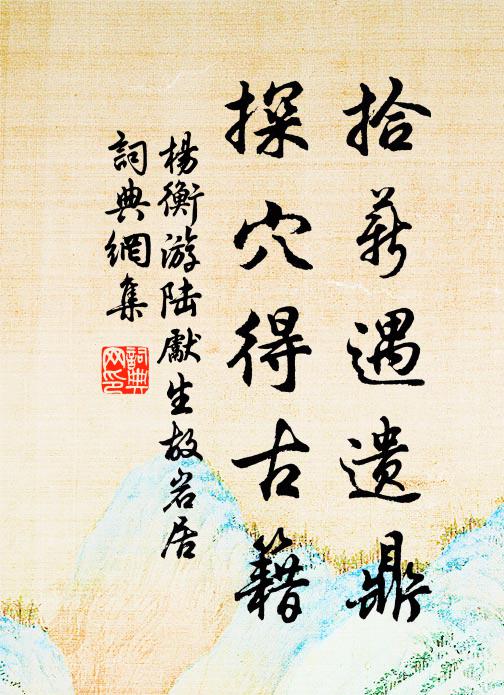 拾薪遇遗鼎
探穴得古籍
楊衡游陆獻生故岩居
詞典網集
詞典網印